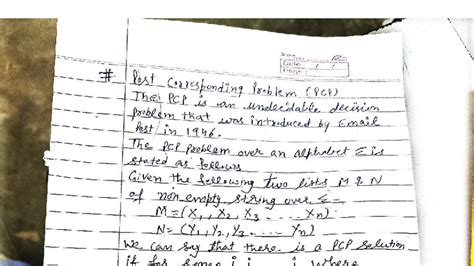 # Post Corresponding Problem (PCP)
The PCP is an undecidable decision
problem that was introduced by Email
Post in 1946.
The PCP problem over an alphabet Σ is
stated as follows
Given the following two lists M & N
of non empty string over Σ -
M = (X1, X2, X3 ..... Xn)
N = (Y1, Y2, ..... Yn)
We can say that there is a PCP solution
if for some i where